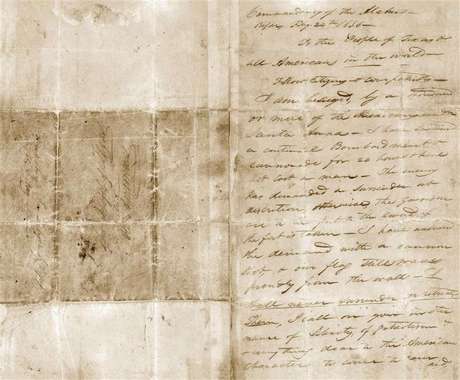 Commandancy of the Alamo—
Bejar Feby. 24th 1836—
To the People of Texas &
all Americans in the world—
Fellow citizens & compatriots—
I am besieged, by a thousand
or more of the Mexicans under
Santa Anna — I have sustained
a continual Bombardment &
cannonade for 24 hours & have
not lost a man — The enemy
has demanded a surrender at
discretion, otherwise, the garrison
are to be put to the sword, if
the fort is taken — I have answered
the demand with a cannon
shot, & our flag still waves
proudly from the walls — I
shall never surrender or retreat
Then, I call on you in the
name of Liberty, of patriotism &
every thing dear to the American
character, to come to our aid,